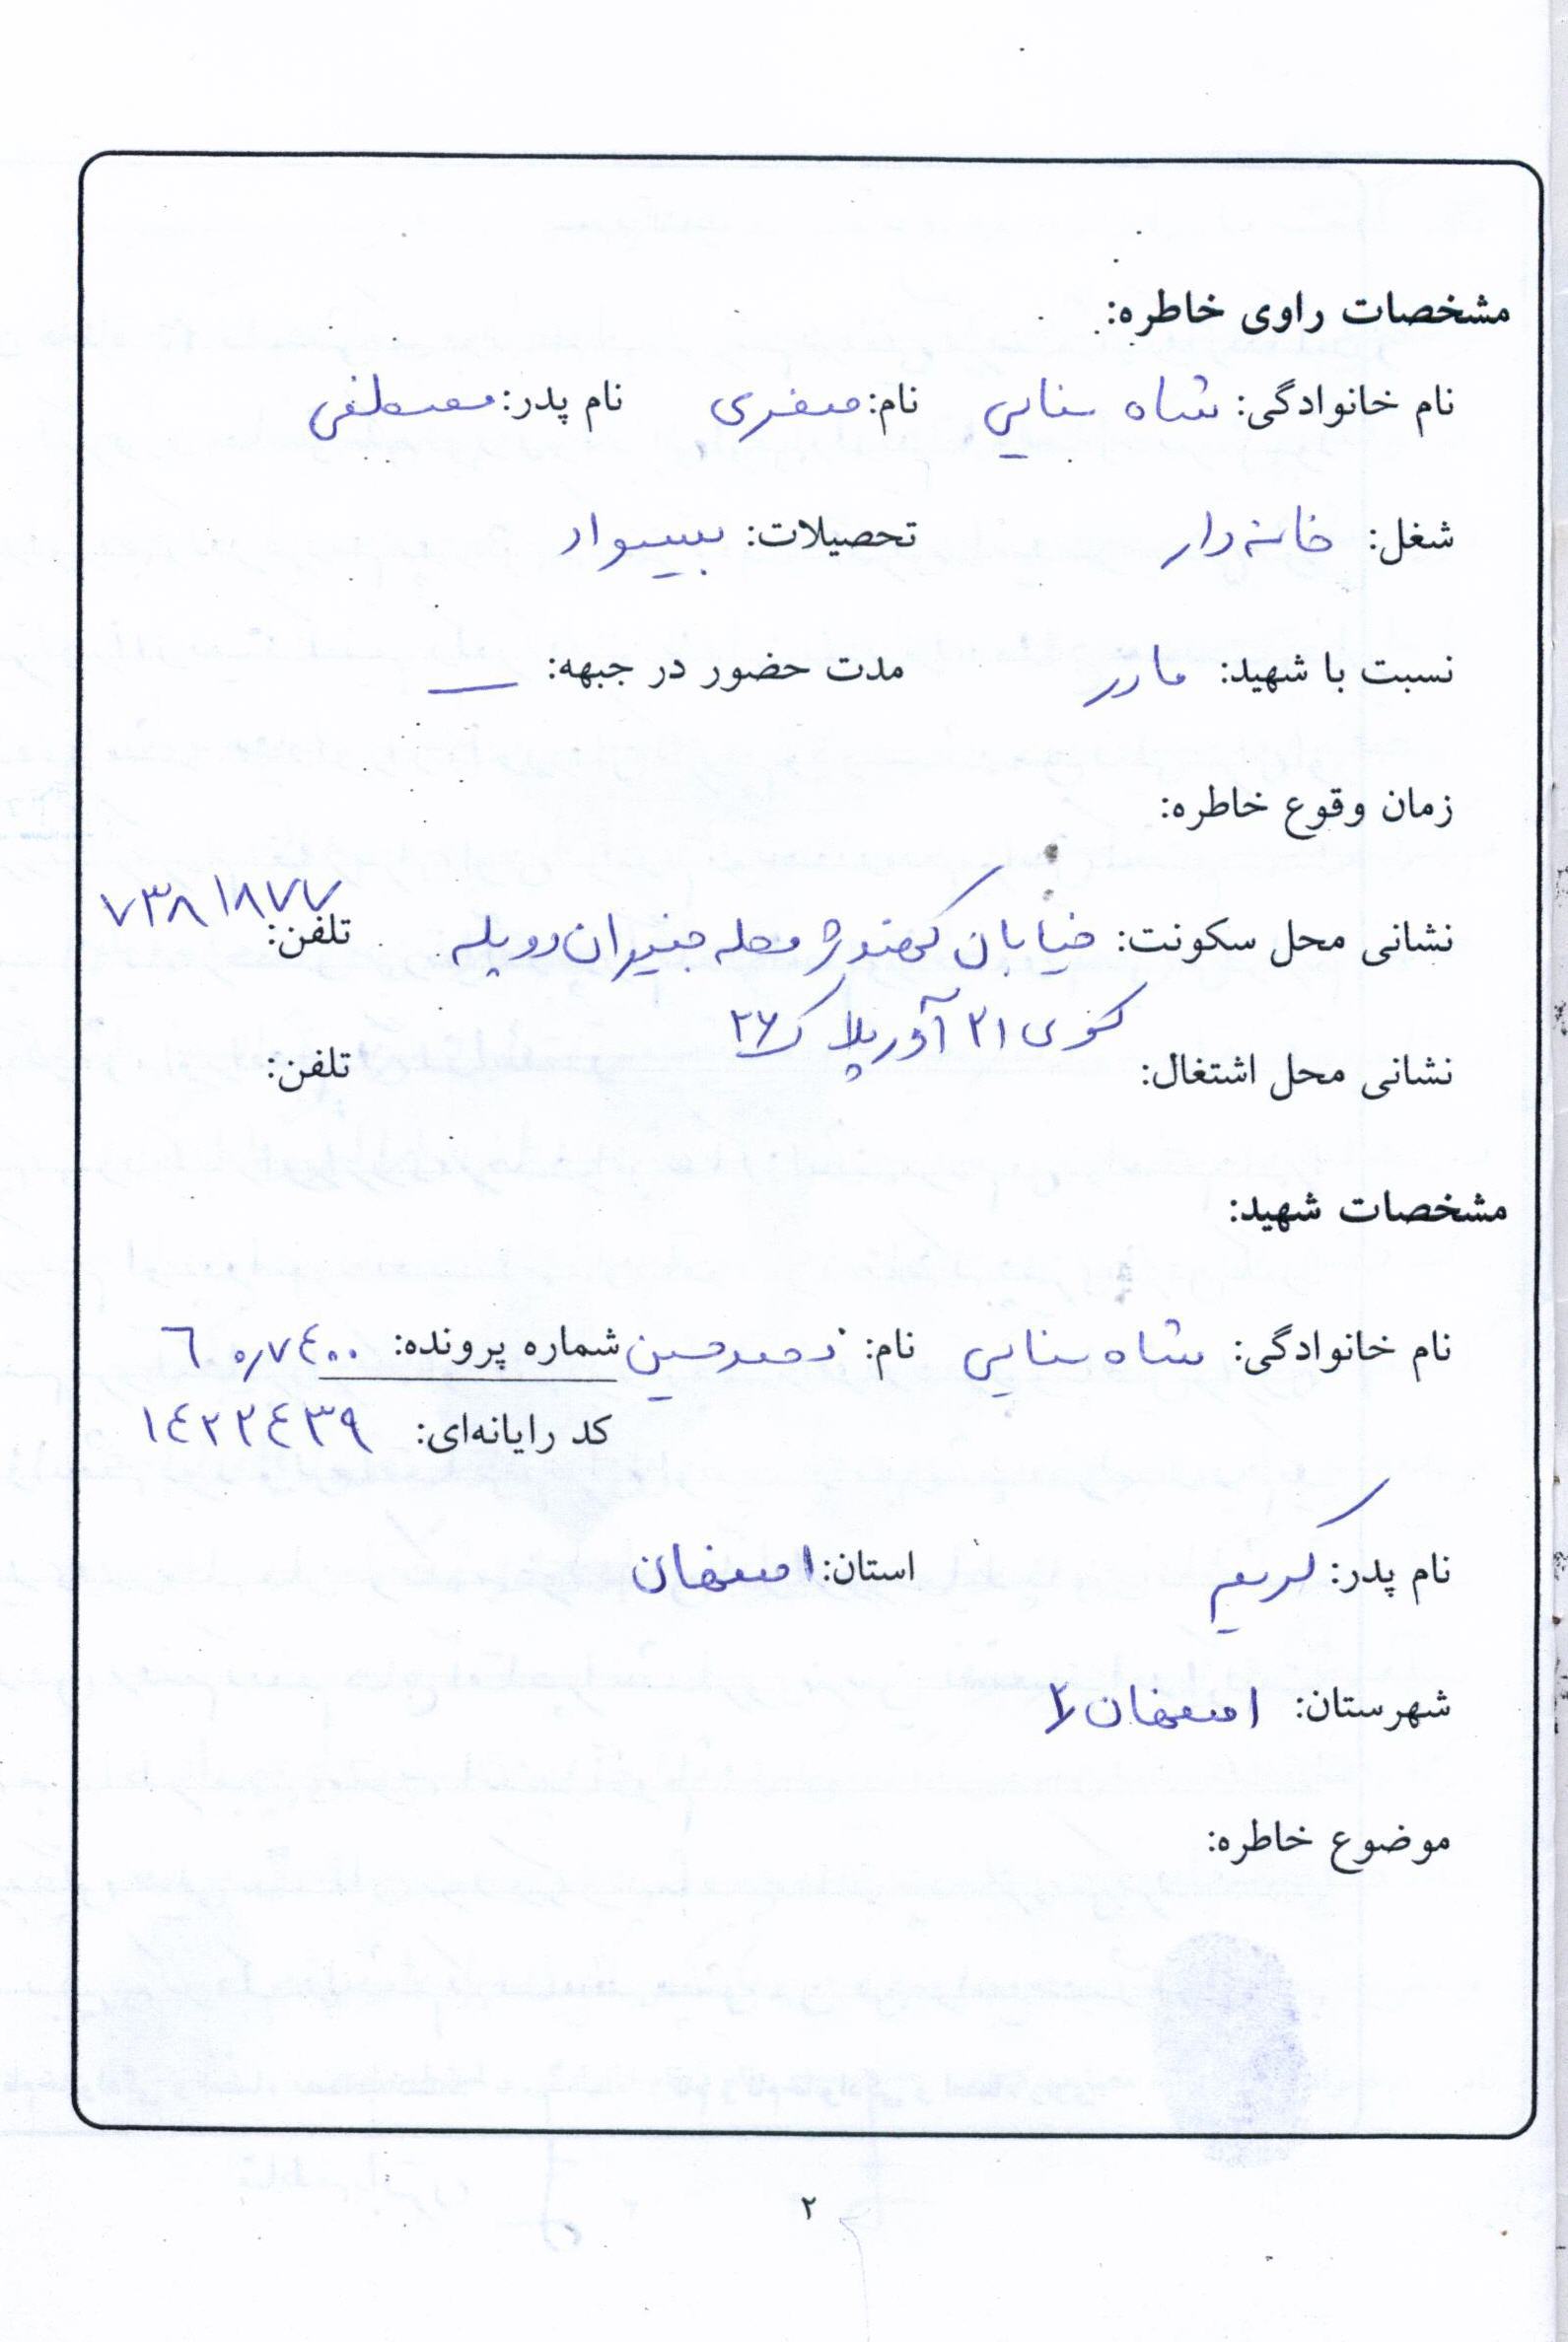 مشخصات راوی خاطره:
نام خانوادگی: شاه سنایی نام: صغری نام پدر: مصطفی
شغل: خانه دار تحصیلات: بیسواد
نسبت با شهید: مادر مدت حضور در جبهه: —
زمان وقوع خاطره:
نشانی محل سکونت: خیابان کهندژ محله جنیران روبله تلفن: ۷۳۸۱۸۷۷
کوی ۲۱ آذر پلاک ۲۶
نشانی محل اشتغال: تلفن:
مشخصات شهید:
نام خانوادگی: شاه سنایی نام: شماره پرونده: ۶۰۵۷۴۰۰
کد رایانه‌ای: ۱۴۲۲۴۳۹
نام پدر: کریم استان: اصفهان
شهرستان: اصفهان ۲
موضوع خاطره:
۲